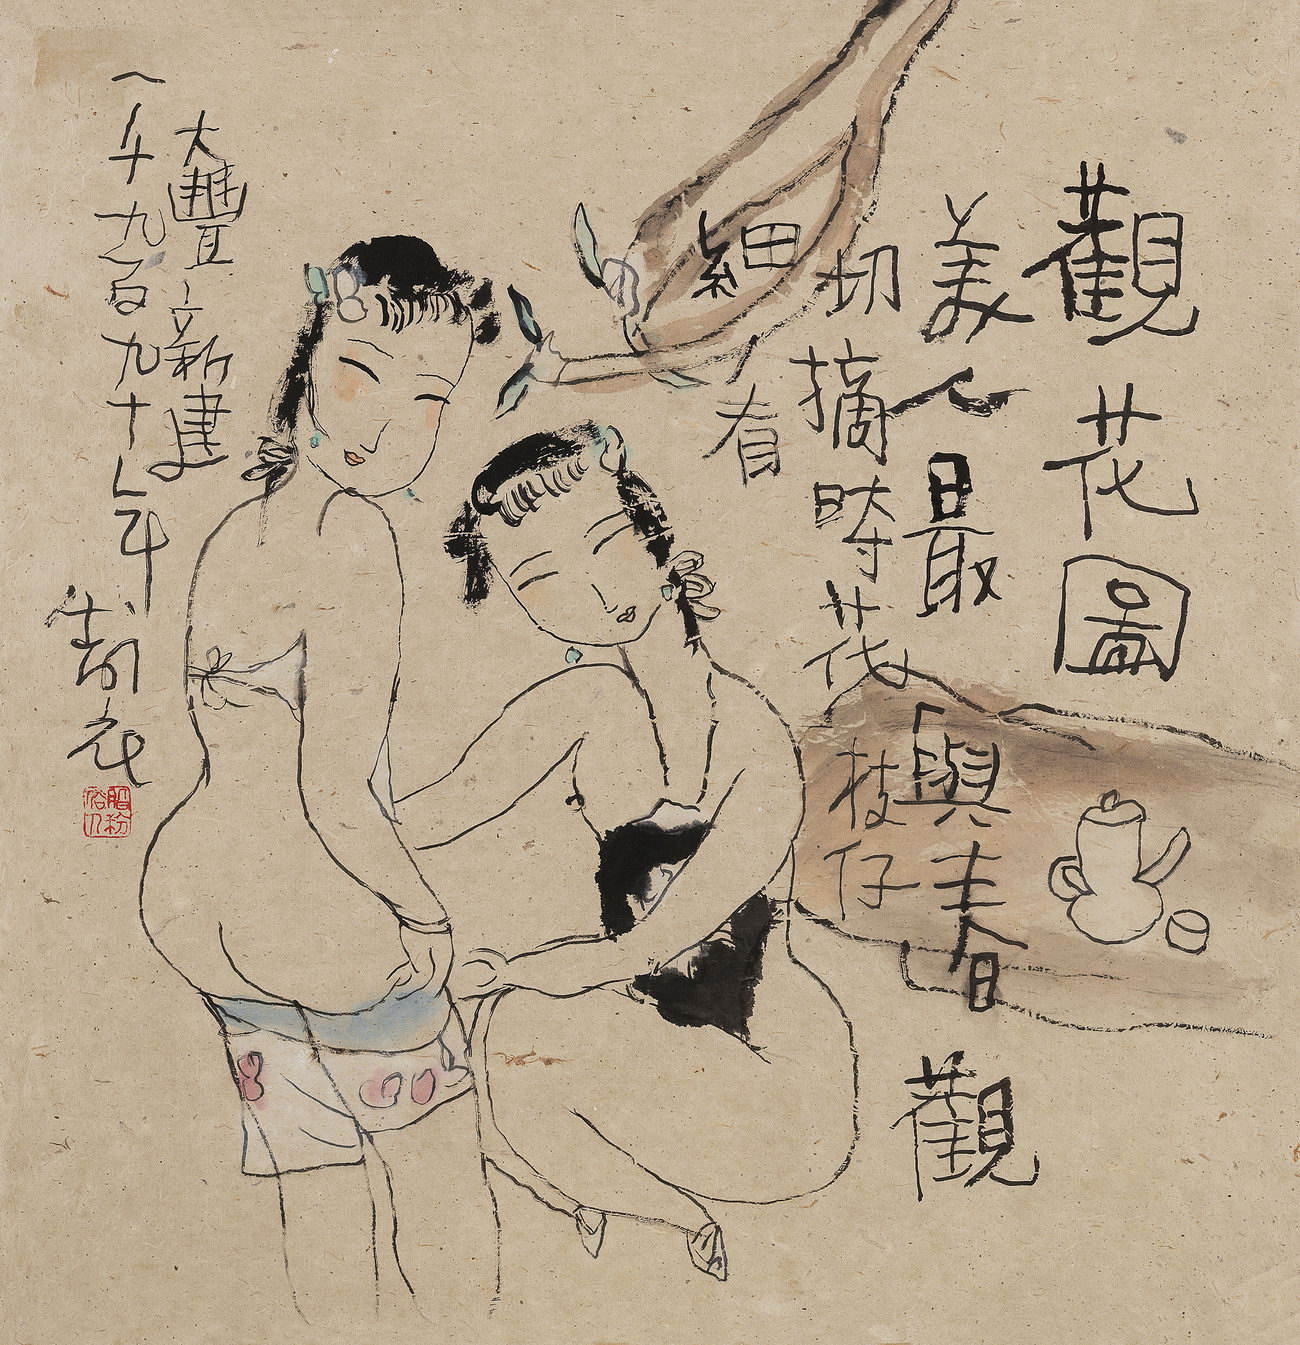 觀花圖
美人最與春觀
切摘時花枝仔
細有
大豐新建
一千九百九十七年制
脂粉